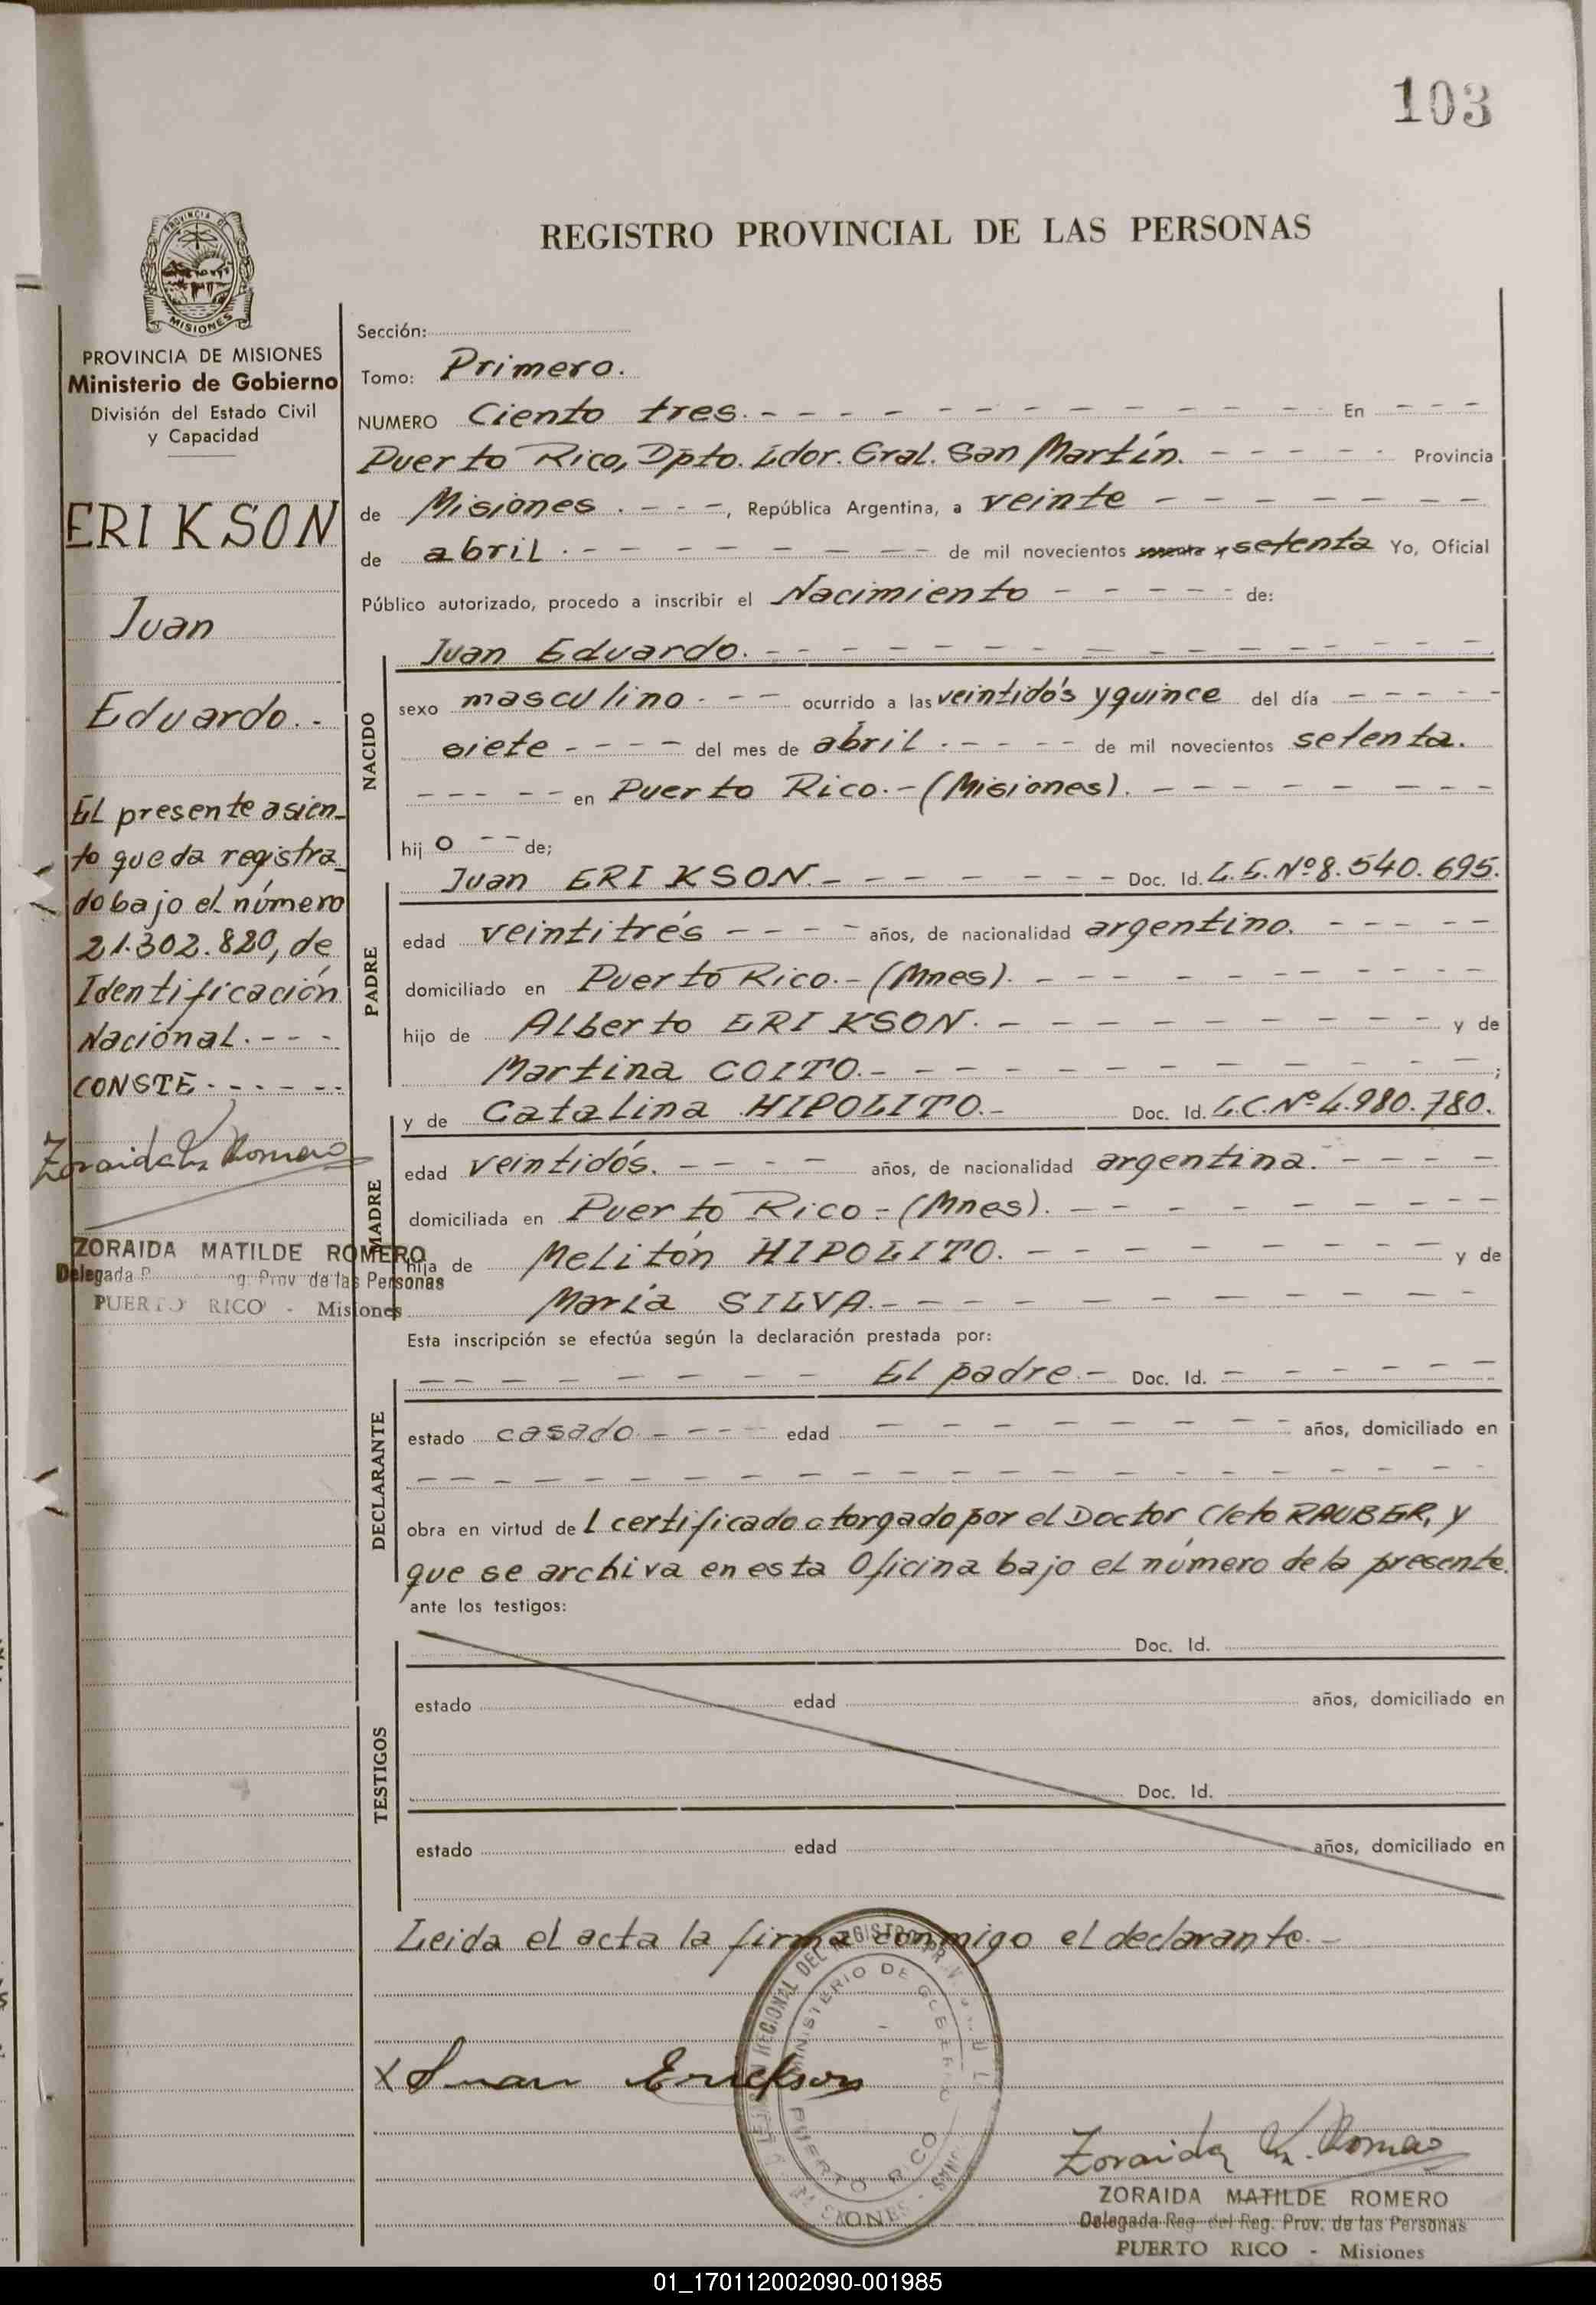 103
REGISTRO PROVINCIAL DE LAS PERSONAS
PROVINCIA
MISIONES
PROVINCIA DE MISIONES
Ministerio de Gobierno
División del Estado Civil
y Capacidad
ERIKSON
Juan
Eduardo.-
EL presente asien-
to queda registra-
do bajo el número
21.302.820, de
Identificación
Nacional.---
CONSTE.-----
Zoraida M. Romero
ZORAIDA MATILDE ROMERO
Delegada Prov de las Personas
PUERTO RICO - Misiones
Sección:
Tomo: Primero.
NUMERO Ciento tres.- En
Puerto Rico, Dpto. Ldor. Gral. San Martín. Provincia
de Misiones.---, República Argentina, a veinte
de abril.- de mil novecientos sesenta y setenta Yo, Oficial
Público autorizado, procedo a inscribir el Nacimiento de:
Juan Eduardo.-
NACIDO
sexo masculino.-- ocurrido a las veintidós y quince del día
siete---- del mes de abril.---- de mil novecientos setenta.
en Puerto Rico.-(Misiones).
hij o -- de;
PADRE
Juan ERIKSON.- Doc. Id. L.E. Nº 8.540.695.
edad veintitrés ---- años, de nacionalidad argentino.
domiciliado en Puerto Rico.-(Mnes).
hijo de Alberto ERIKSON.- y de
Martina COITO.- ;
MADRE
y de Catalina HIPOLITO.- Doc. Id. L.C. Nº 4.980.780.
edad veintidós.---- años, de nacionalidad argentina.
domiciliada en Puerto Rico-(Mnes).
hija de Melitón HIPOLITO.- y de
María SILVA.-
Esta inscripción se efectúa según la declaración prestada por:
DECLARANTE
El padre.- Doc. Id.
estado casado---- edad años, domiciliado en
obra en virtud de l certificado otorgado por el Doctor Cleto RAUBER, y
que se archiva en esta Oficina bajo el número de la presente.
ante los testigos:
TESTIGOS
Doc. Id.
estado edad años, domiciliado en
Doc. Id.
estado edad años, domiciliado en
Leida el acta la firma conmigo el declarante.-
REGIONAL DEL REGISTRO
MINISTERIO DE GOBIERNO
PUERTO RICO
x Juan Erikson
Zoraida M. Romero
ZORAIDA MATILDE ROMERO
Delegada Reg del Reg. Prov. de las Personas
PUERTO RICO - Misiones
01_170112002090-001985